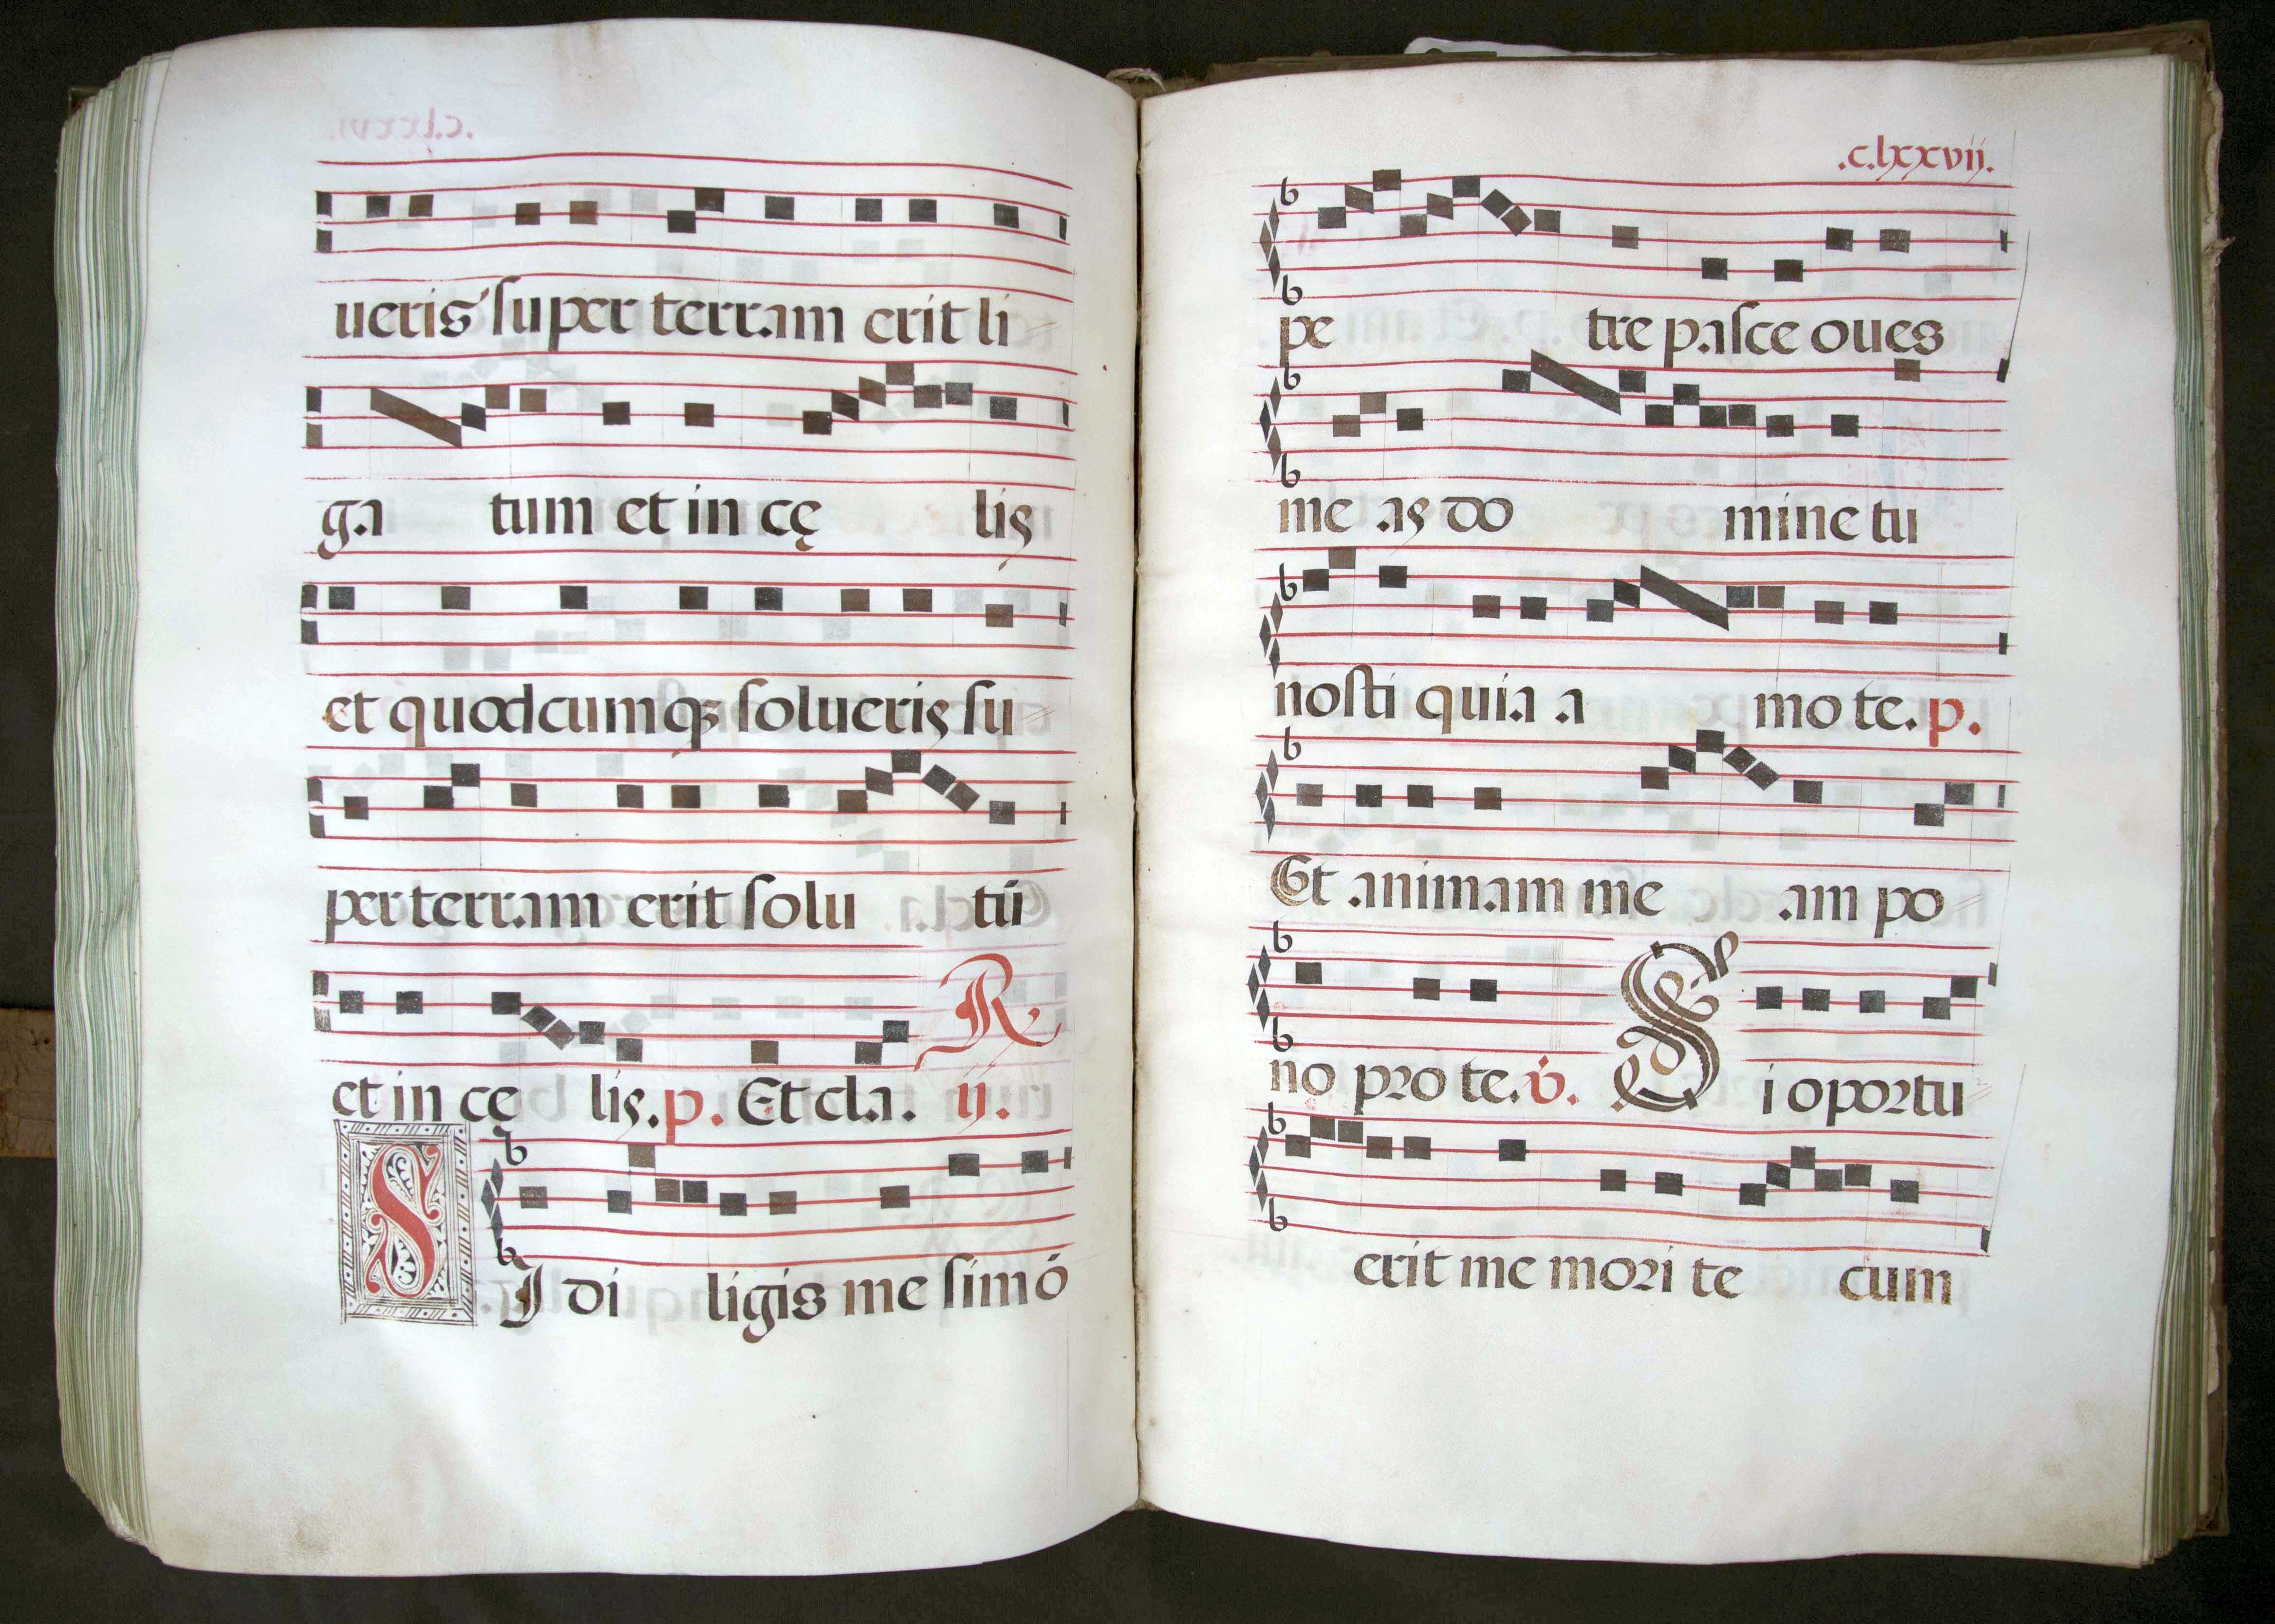 ueris super terram erit li
ga tum et in cę lis
et quodcumqꝫ solueris su
per terram erit solu tũ
R
et in cę lis. p. Et cla. ij.
S I di ligis me simõ
.c.lxxvii.
pe tre pasce oues
me as do mine tu
nosti quia a mo te. p.
Et animam me am po
no pro te. v. S i oportu
erit me mori te cum